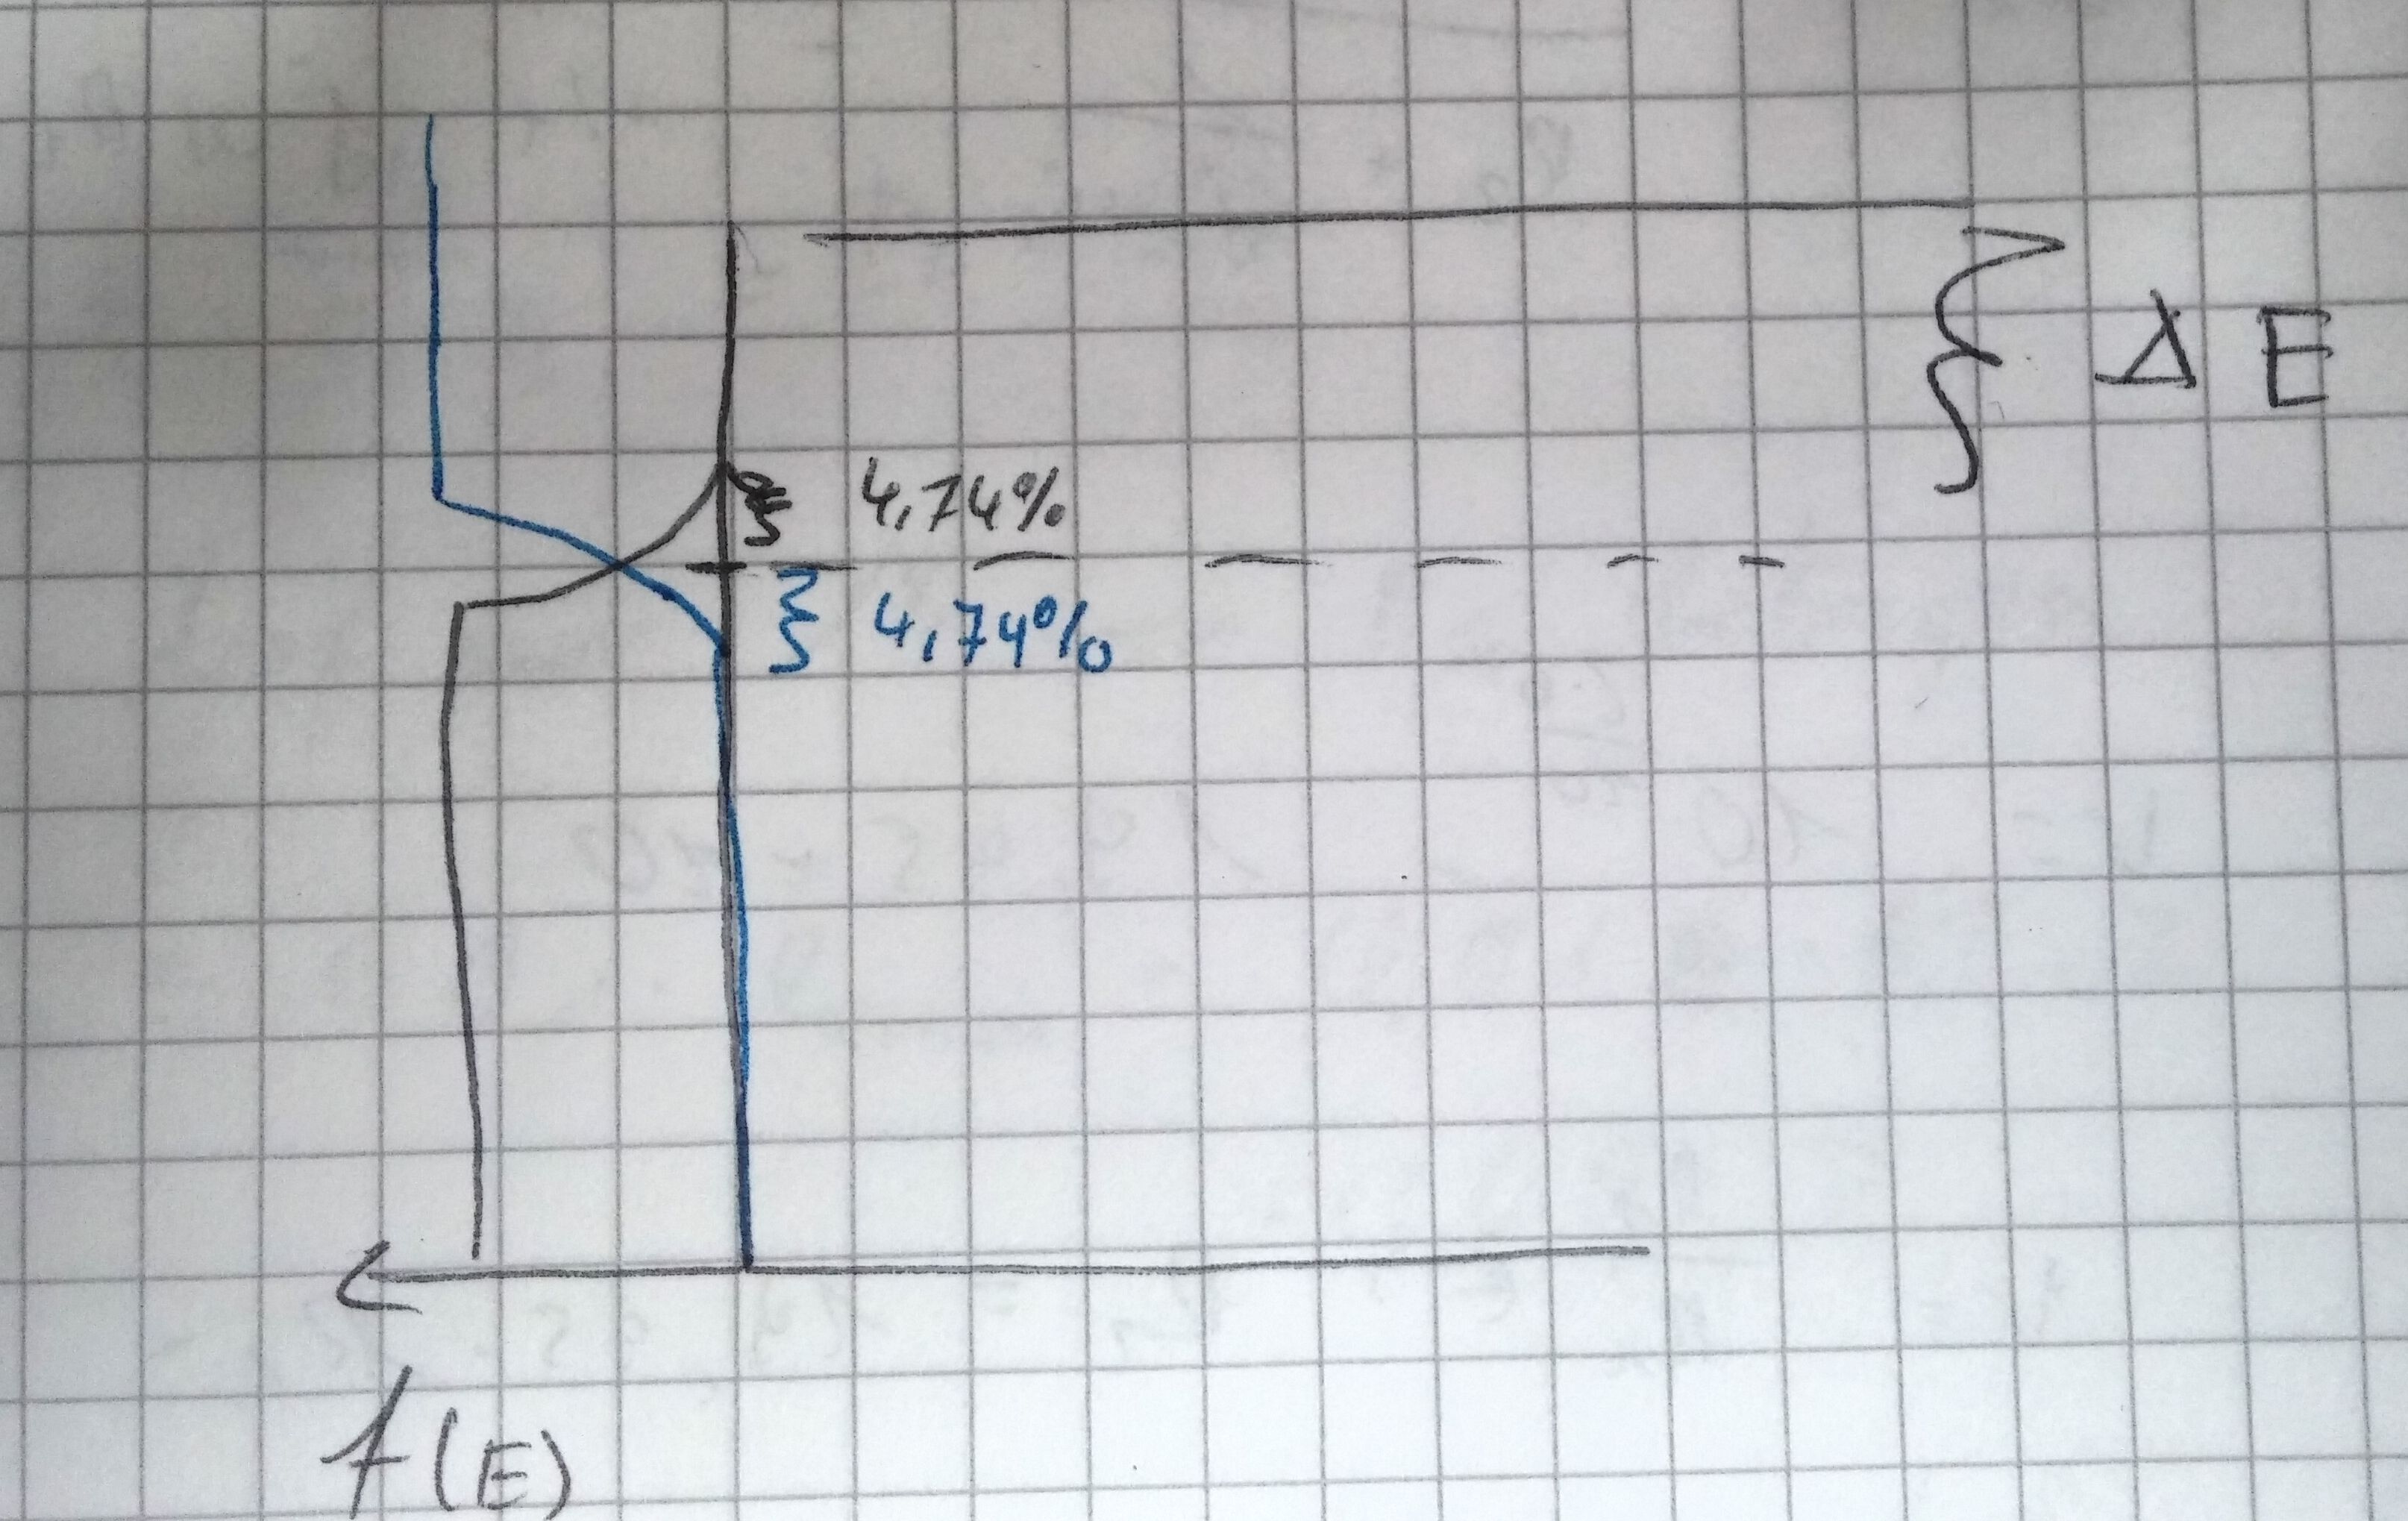 Δ E
4,74%
4,74%
f(E)